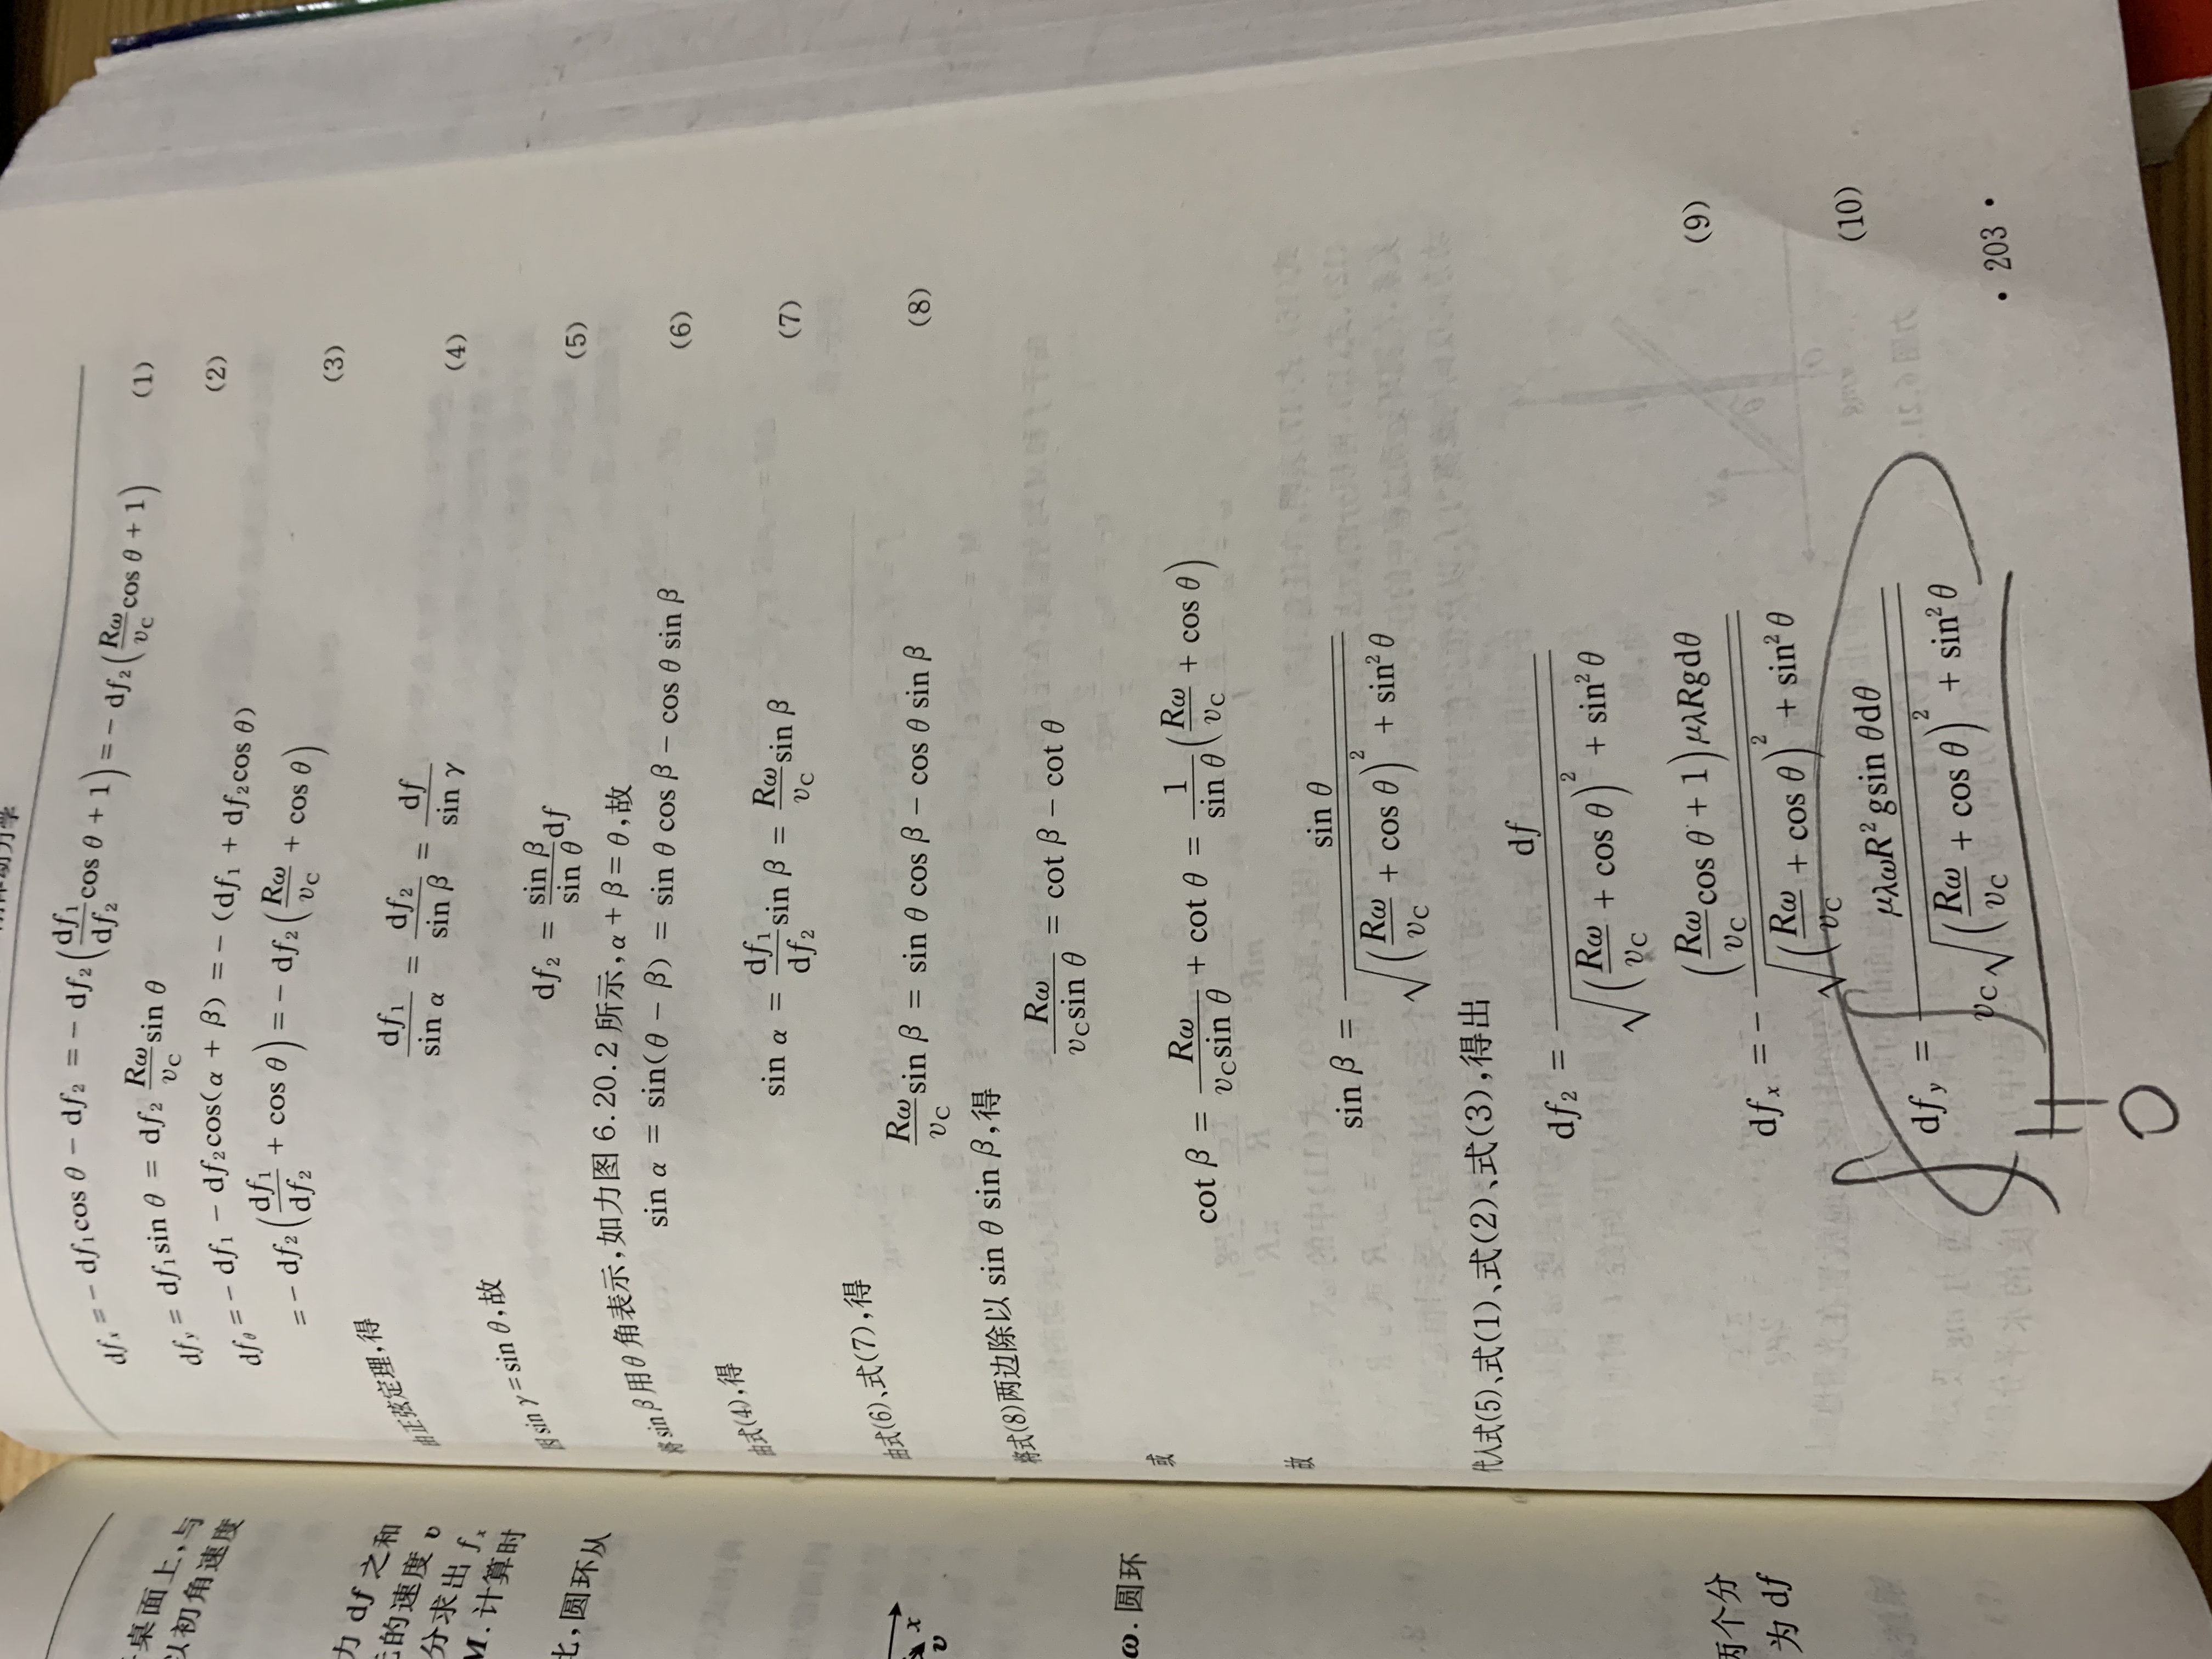 df_x = - df₁cos θ - df₂ = - df₂(df₁/df₂ cos θ + 1) = - df₂(Rω/v_C cos θ + 1) (1)
df_y = df₁sin θ = df₂ Rω/v_C sin θ (2)
df_θ = - df₁ - df₂cos(α + β) = - (df₁ + df₂cos θ)
= - df₂(df₁/df₂ + cos θ) = - df₂(Rω/v_C + cos θ) (3)
由正弦定理,得
df₁/sin α = df₂/sin β = df/sin γ (4)
因 sin γ = sin θ,故
df₂ = sin β/sin θ df (5)
将 sin β 用 θ 角表示,如力图 6.20.2 所示,α + β = θ,故
sin α = sin(θ - β) = sin θ cos β - cos θ sin β (6)
由式(4),得
sin α = df₁/df₂ sin β = Rω/v_C sin β (7)
由式(6)、式(7),得
Rω/v_C sin β = sin θ cos β - cos θ sin β (8)
将式(8)两边除以 sin θ sin β,得
Rω/(v_C sin θ) = cot β - cot θ
或
cot β = Rω/(v_C sin θ) + cot θ = 1/sin θ (Rω/v_C + cos θ)
故
sin β = sin θ/√((Rω/v_C + cos θ)² + sin² θ)
代入式(5)、式(1)、式(2)、式(3),得出
df₂ = df/√((Rω/v_C + cos θ)² + sin² θ)
df_x = - (Rω/v_C cos θ + 1)μλRgdθ/√((Rω/v_C + cos θ)² + sin² θ) (9)
df_y = μλωR²gsin θdθ/(v_C√((Rω/v_C + cos θ)² + sin² θ)) (10)
· 203 ·
桌面上,与
以初角速度
力 df 之和
的速度 v
分求出 f_x
M. 计算时
比,圆环从
x
v
ω. 圆环
两个分
为 df